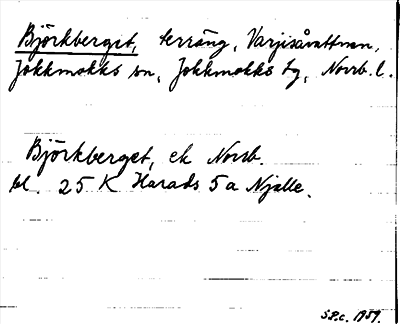 Björkberget, terräng, Varjisåvattnen,
Jokkmokks sn, Jokkmokks tg, Norrb. l.
Björkberget, ek Norrb.
bl. 25 K Harads 5 a Njalle.
S.P.C. 1959.